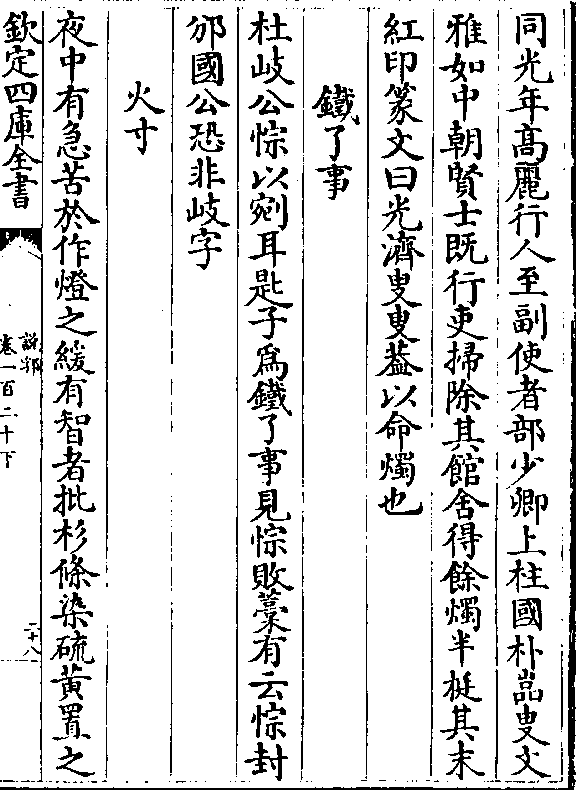 同光年髙麗行人至副使者部少卿上柱國朴嵓叟文
雅如中朝賢士既行吏掃除其館舎得餘燭半挺其末
紅印篆文曰光濟叟叟葢以命燭也
鐵了事
杜岐公悰以剜耳匙子為鐵了事見悰敗藁有云悰封
邠國公恐非岐字
火寸
夜中有急苦於作燈之緩有智者批杉條染硫黄置之
欽定四庫全書
説郛
卷一百二十下
二十八